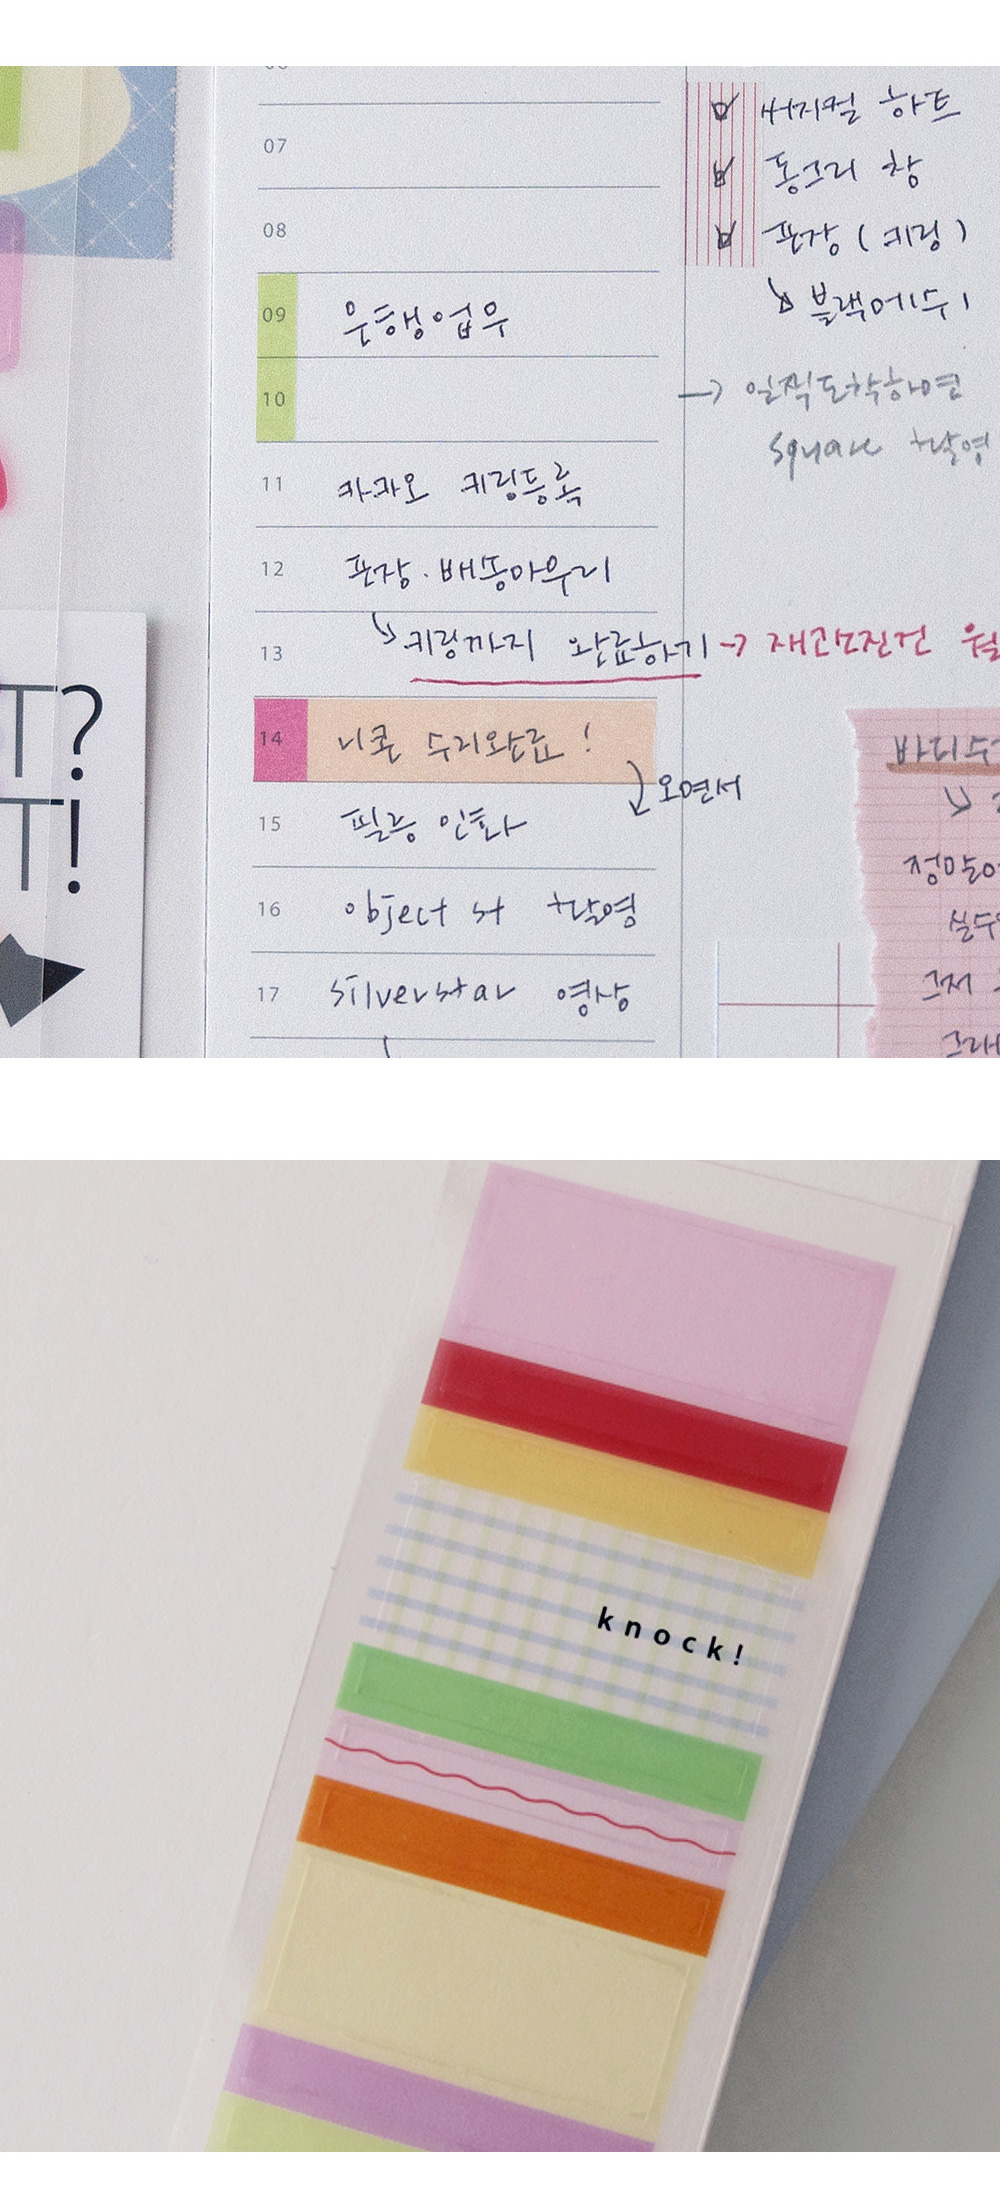 07
08
09 은행업무
10
11 카카오 키링등록
12 포장·배송마무리
키링까지 완료하기 →
13
14 니콘 수리완료!
오면서
15 필름 인화
16 object st 촬영
17 silverstar 영상
버지컬 하트
동그리 창
포장 (키링)
블랙에디
→ 일찍도착하면
square 촬영
T?
T!
바디수
정말
실수
그저
그래
knock!